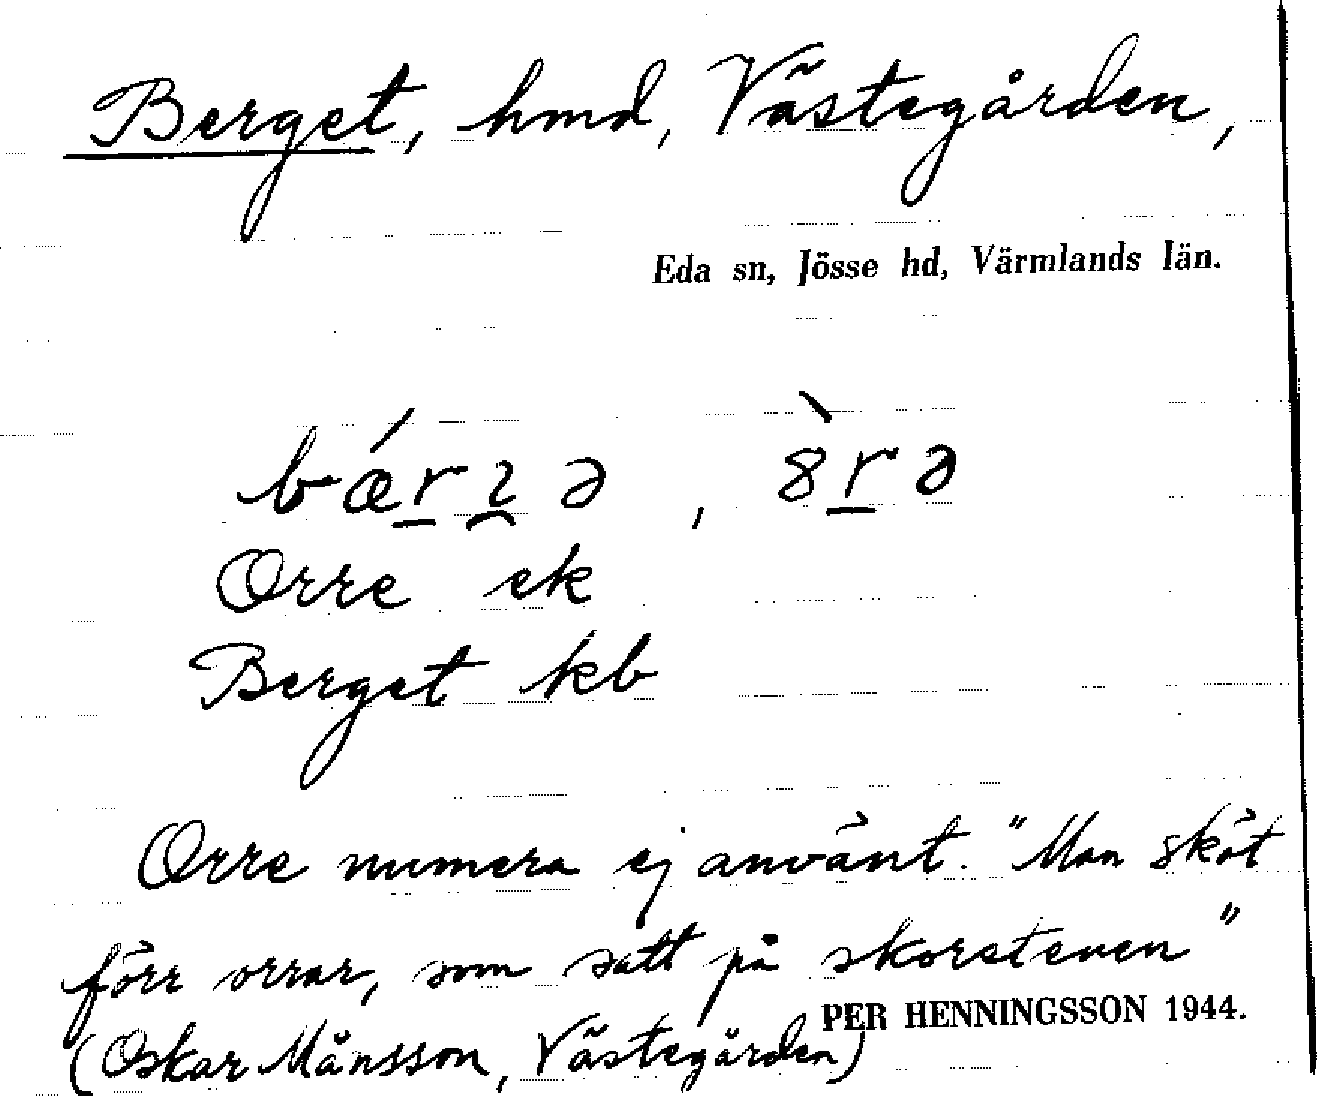 Berget, hmd, Västegården,
Eda sn, Jösse hd, Värmlands län.
Orre ek
Berget kb
Orre numera ej använt. "Man sköt
förr orrar, som satt på skorstenen"
PER HENNINGSSON 1944.
(Oskar Månsson, Västegården)